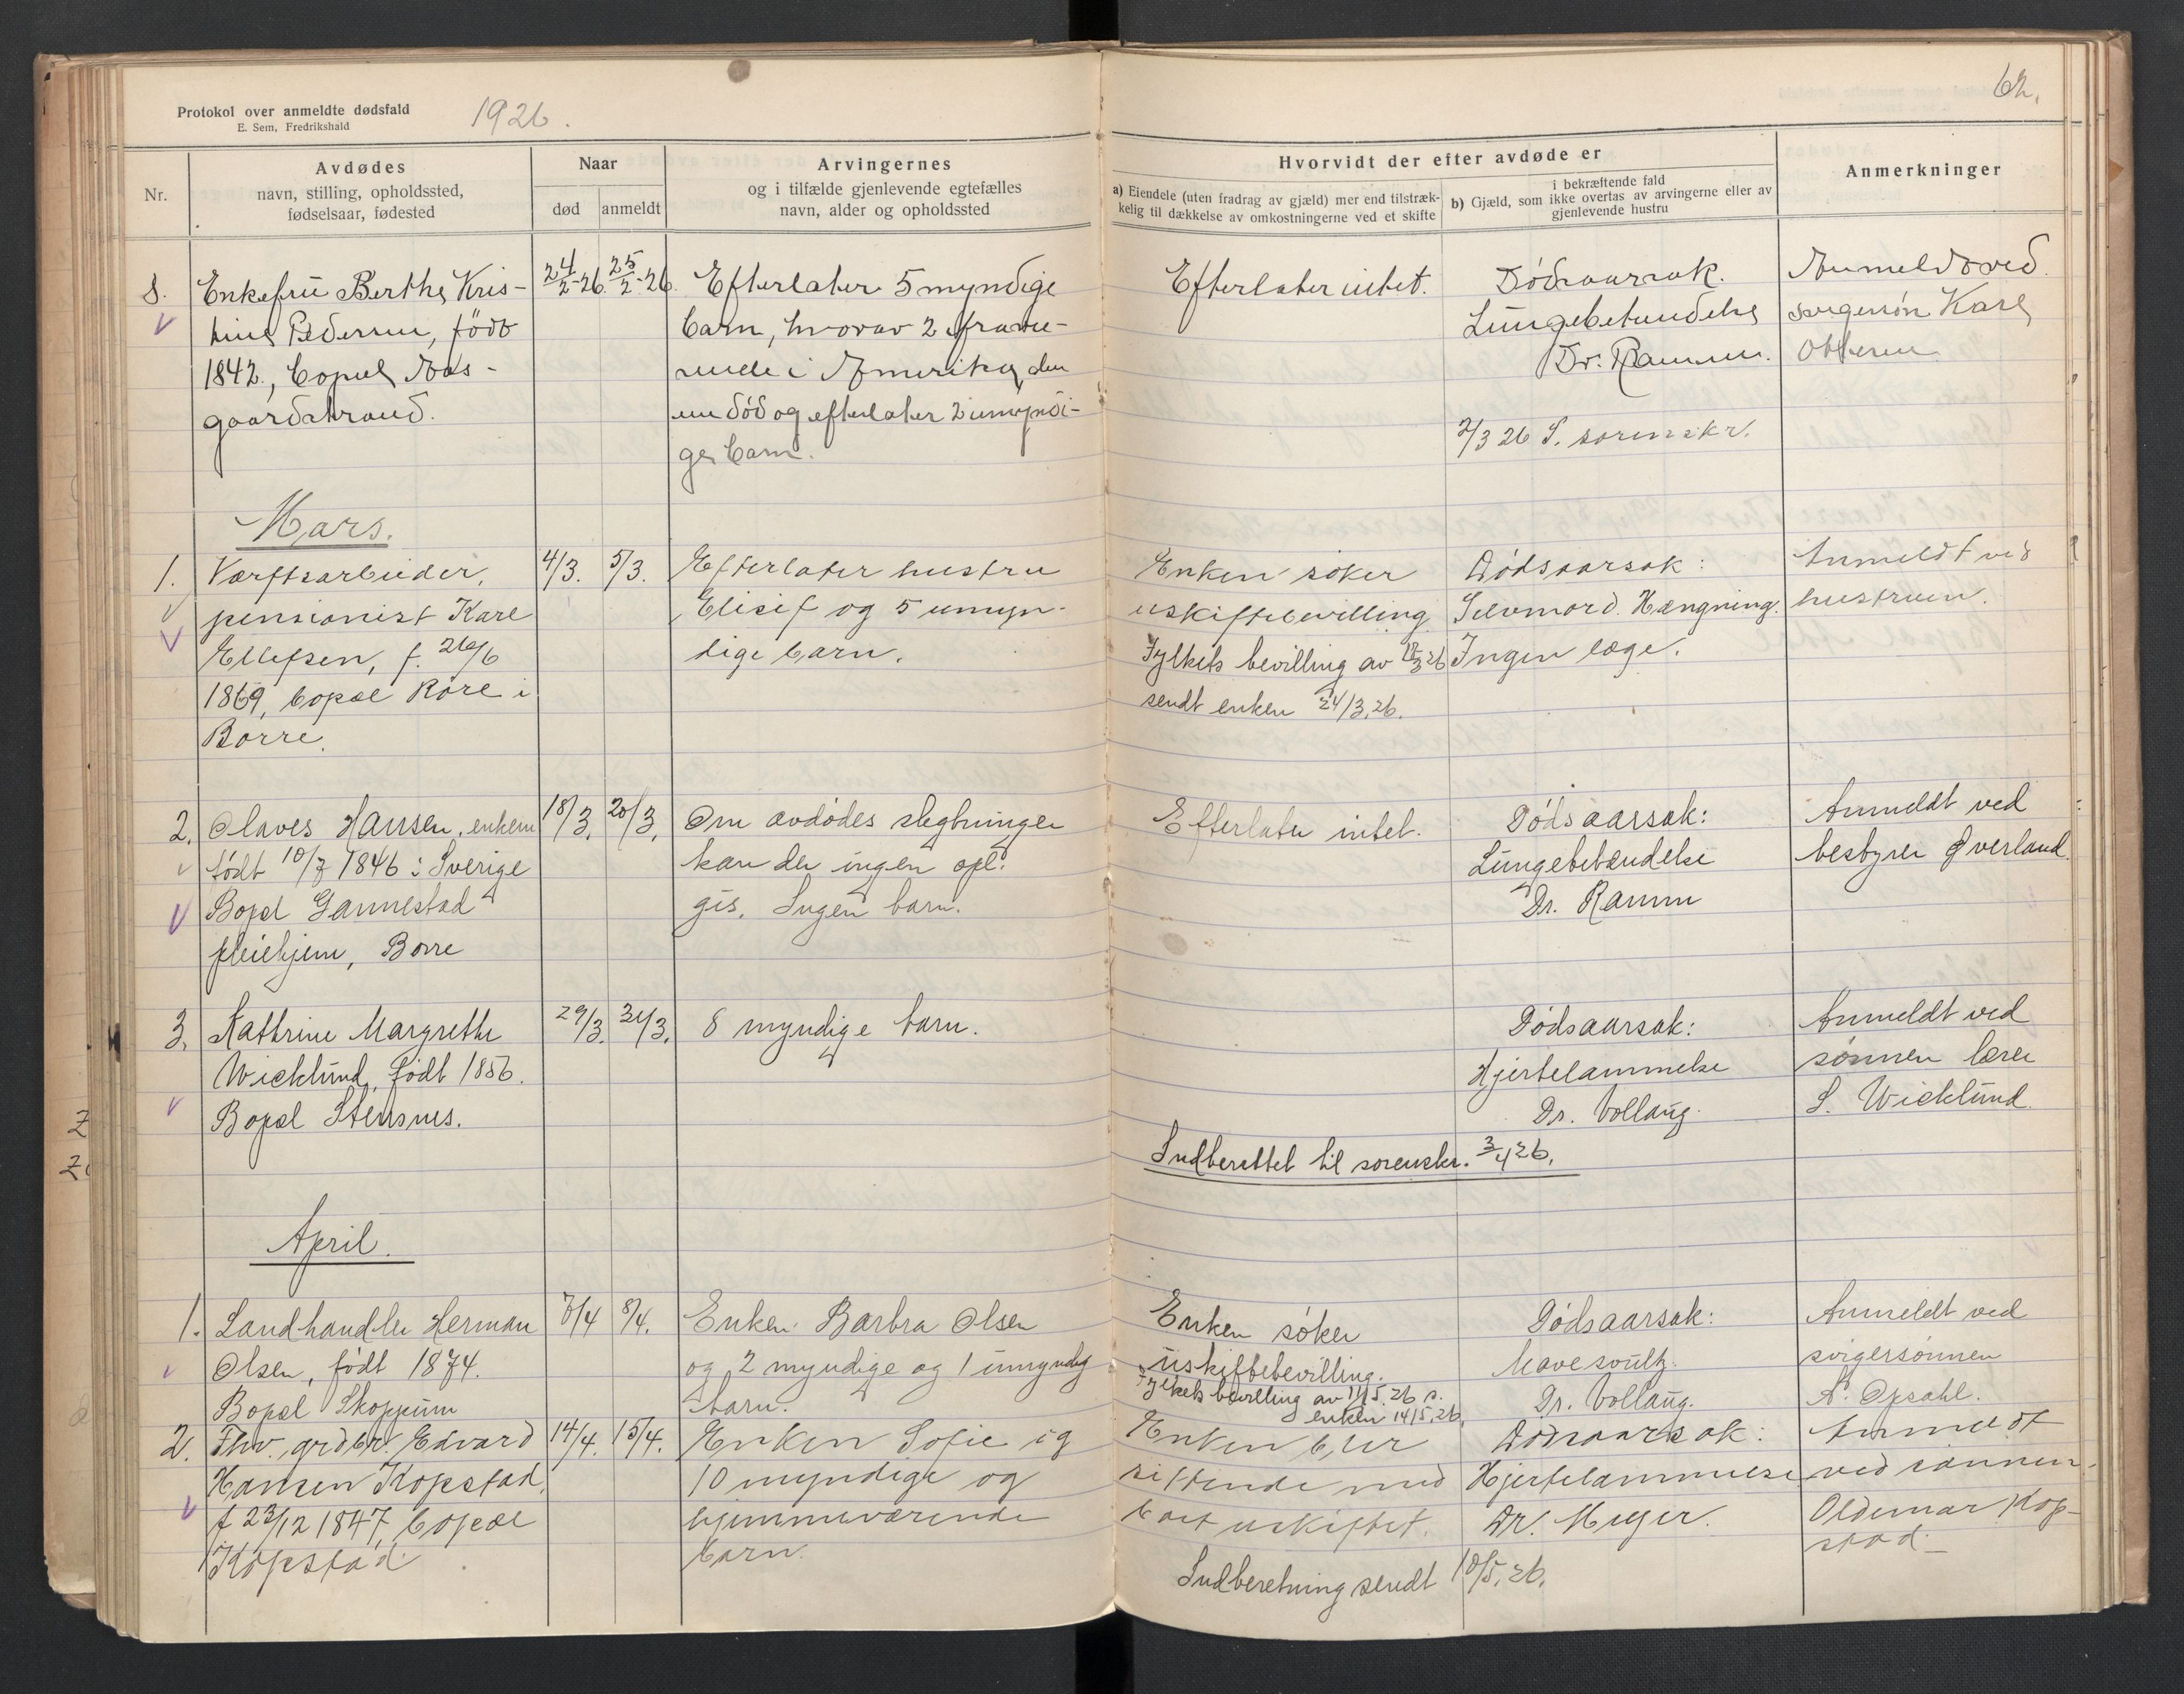 Protokol over anmeldte dødsfald
E. Sem, Fredrikshald
1926.
62.
Nr.
Avdødes
navn, stilling, opholdssted,
fødselsaar, fødested
Naar
død
anmeldt
Arvingernes
og i tilfælde gjenlevende egtefælles
navn, alder og opholdssted
Hvorvidt der efter avdøde er
a) Eiendele (uten fradrag av gjæld) mer end tilstræk-
kelig til dækkelse av omkostningerne ved et skifte
i bekræftende fald
b) Gjæld, som ikke overtas av arvingerne eller av
gjenlevende hustru
Anmerkninger
8.
Enkefru Berthe Kris-
tine Pedersen, födt
1842., bopel Aas-
gaardstrand.
24/2-26.
25/2-26.
Efterlater 5 myndige
barn, hvorav 2 fravæ-
rende i Amerika, den
ene död og efterlater 2 umyndi-
ge barn.
Efterlater intet.
Dödsaarsak.
Lungebetændelse
Dr. Ramm.
2/3 26 S. sorenskr.
Anmeldt ved
svigersøn Karl
Mars.
1.
Værftsarbeider,
pensionist Karl
Ellefsen, f. 26/6
1869, bopæl Røre i
Borre.
4/3.
5/3.
Efterlater hustru
Elisif og 5 umyn-
dige barn.
Enken søker
uskiftebevilling.
Fylkets bevilling av 18/3 26
sendt enken 24/3.26.
Dødsaarsak:
Selvmord. Hængning.
Ingen læge.
Anmeldt ved
hustruen.
2.
Olaves Hansen, enkem.
født 10/7 1846 i Sverige
Bopel Gannestad
pleiehjem, Borre
18/3.
20/3.
Om avdødes slegtninger
kan der ingen opl.
gis. Ingen barn.
Efterlater intet.
Dødsaarsak:
Lungebetændelse
Dr. Ramm
Anmeldt ved
bestyrer Øverland.
3.
Kathrine Margrethe
Wicklund, født 1856.
Bopæl Stensnes.
29/3.
31/3.
8 myndige barn.
Dødsaarsak:
Hjertelammelse
Dr. Vollaug.
Anmeldt ved
sønnen lærer
S. Wicklund.
Indberettet til sorenskr. 3/4 26.
April.
1.
Landhandler Herman
Olsen, født 1874.
Bopæl Skoppum
7/4
8/4.
Enken Barbra Olsen
og 2 myndige og 1 umyndig
barn.
Enken søker
uskiftebevilling.
Fylkets bevilling av 11/5.26 s.
enken 14/5.26.
Dødsaarsak:
Mavesvulz.
Dr. Vollaug.
Anmeldt ved
svigersønnen
A. Opsahl.
2.
Fhv. grdbr. Edvard
Hansen Kopstad,
f 23/12 1847, bopæl
Kopstad.
14/4.
15/4.
Enken Sofie og
10 myndige og
hjemmeværende
barn.
Enken blir
sittende med
boet uskiftet.
Dødsaarsak:
Hjertelammelse
Dr. Meyer.
Anmeldt
ved sønnen
Oldemar Kop-
stad-
Indberetning sendt 18/5.26.